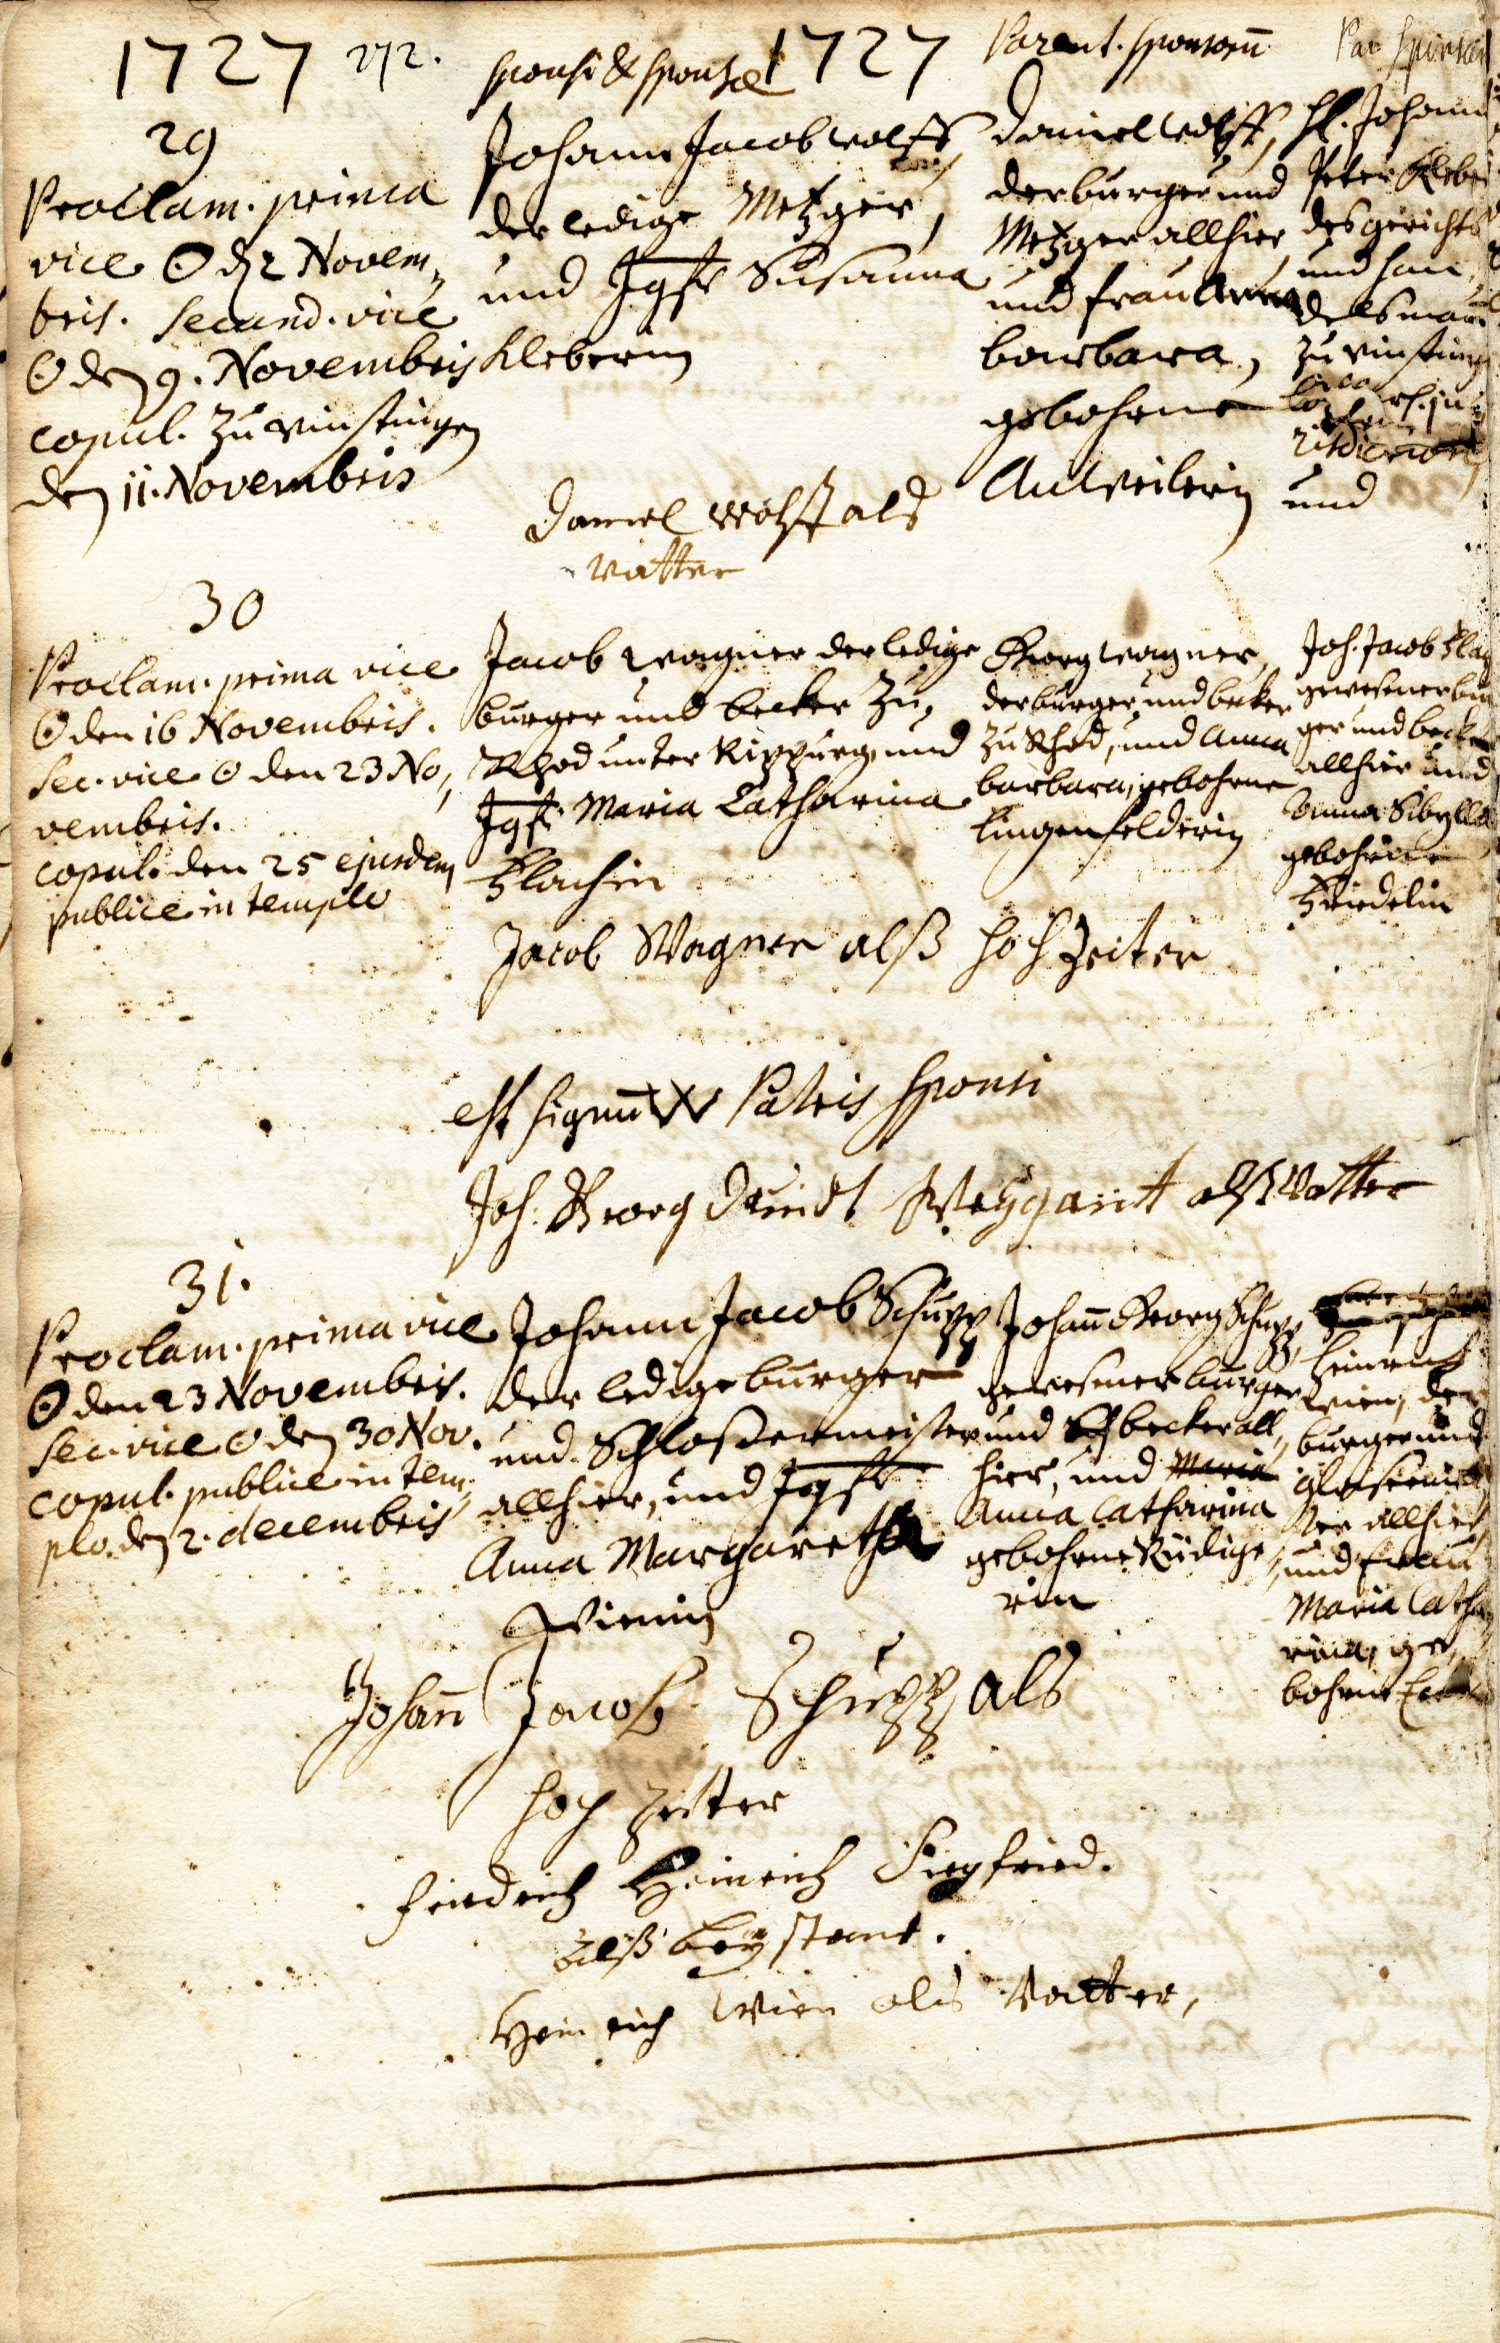 1727 272. sponsi & sponsae 1727 Parent. sponsorū Par sponsae
29
Proclam. prima
vice ☉ dē 2 Novem,,
bris. Secund. vice
☉ den 9. Novembris
copul. zu vinstingen
den 11. Novembris
Johann Jacob Wolff,
der ledige Metzger,
und Jgfr Susanna
Kleberin
Daniel Wolff,
der burger und
Metzger allhier,
und frau Anna
barbara,
gebohrne
Anweilerin
H. Johann
Peter Kleber
des gerichts
und han,,
delsmann
zu vinstingen
und
Daniel Wolff als
vatter
30
Proclam. prima vice
☉ den 16 Novembris.
Sec. vice ☉ den 23 No,,
vembris.
copul. den 25 ejusdem
publice in templo
Jacob Wagner der ledige
burger und becker zu
Rhod unter Rippurg, und
Jgfr Maria Catharina
Flachin
Georg Wagner,
der burger und becker
zu Rhod, und Anna
barbara, gebohrne
Lingenfelderin
Joh. Jacob Flach
gewesener bur
ger und becker
allhier und
Anna Sibylla
gebohrne
Friedelin
Jacob Wagner alß hochzeiter
est signū W Patris sponsi
Joh: Georg Weygant alß Vatter
31.
Proclam. prima vice
☉ den 23 Novembris.
Sec. vice ☉ den 30 Nov.
copul. publice in tem,,
plo. den 2. decembris
Johann Jacob Schupp
der ledige burger
und Schloßermeister
allhier, und Jgfr
Anna Margaretha
Wienin
Johann Georg Schupp,
gewesener burger
und becker all,,
hier, und Maria
Anna Catharina
gebohrne Rüdige,,
rin
Heinrich
Wien, der
burger und
glasermeis
ter allhier
und frau
Maria Catha,,
rina, ge,,
bohrne
Johann Jacob Schupp als
hochzeitter
friedrich Heinrich Siegfried.
alß beystant.
Heinrich Wien als Vatter,